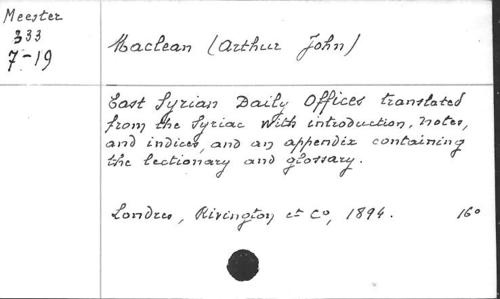 Meester
333
7-19
Maclean (Arthur John)
East Syrian Daily Offices translated
from the Syriac with introduction, notes,
and indices, and an appendix containing
the lectionary and glossary.
Londres, Rivington et Co, 1894. 16°